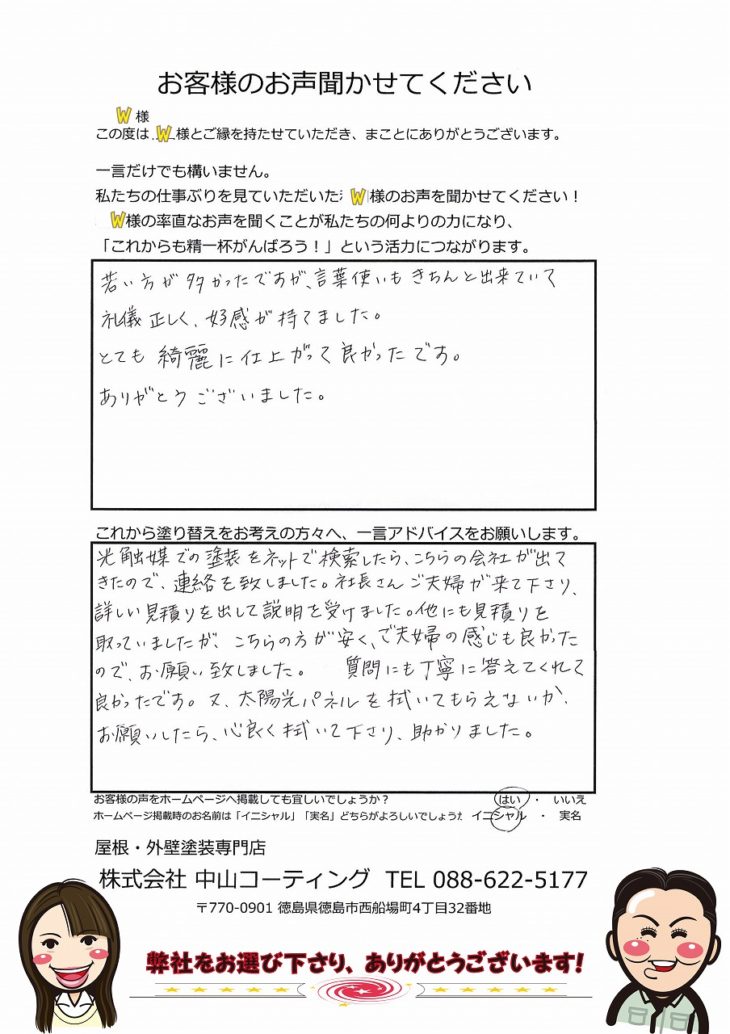 お客様のお声聞かせてください
W 様
この度は W 様とご縁を持たせていただき、まことにありがとうございます。
一言だけでも構いません。
私たちの仕事ぶりを見ていただいた W 様のお声を聞かせてください！
W様の率直なお声を聞くことが私たちの何よりの力になり、
「これからも精一杯がんばろう！」という活力につながります。
若い方が多かったですが、言葉使いもきちんと出来ていて
礼儀正しく、好感が持てました。
とても綺麗に仕上がって良かったです。
ありがとうございました。
これから塗り替えをお考えの方々へ、一言アドバイスをお願いします。
光触媒での塗装をネットで検索したら、こちらの会社が出て
きたので、連絡を致しました。社長さんご夫婦が来て下さり、
詳しい見積りを出して説明を受けました。他にも見積りを
取っていましたが、こちらの方が安く、ご夫婦の感じも良かった
ので、お願い致しました。 質問にも丁寧に答えてくれて
良かったです。又、太陽光パネルを拭いてもらえないか、
お願いしたら、心良く拭いて下さり、助かりました。
お客様の声をホームページへ掲載しても宜しいでしょうか？ はい ・ いいえ
ホームページ掲載時のお名前は「イニシャル」「実名」どちらがよろしいでしょうか イニシャル ・ 実名
屋根・外壁塗装専門店
株式会社 中山コーティング TEL 088-622-5177
〒770-0901 徳島県徳島市西船場町4丁目32番地
弊社をお選び下さり、ありがとうございます!